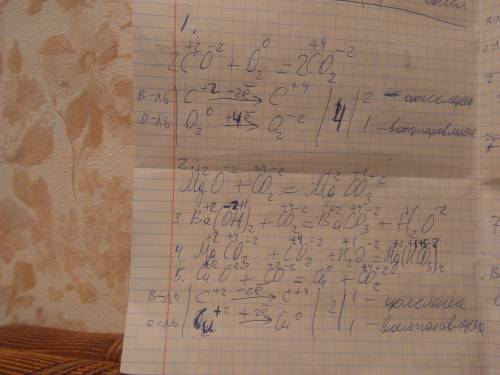 1.
2C⁺²O⁻² + O₂⁰ = 2C⁺⁴O₂⁻²
в-ль | C⁺² –2e̅→ C⁺⁴ | 4 | 2 – окисление
о-ль | O₂⁰ +4e̅→ O₂⁻² | 1 – восстановление
2. Mg⁺²O⁻² + C⁺⁴O₂⁻² = Mg⁺²C⁺⁴O₃⁻²
3. Ba⁺²(O⁻²H⁺¹)₂ + C⁺⁴O₂⁻² = Ba⁺²C⁺⁴O₃⁻² + H₂⁺O⁻²
4. Mg⁺²C⁺⁴O₃⁻² + C⁺⁴O₂⁻² + H₂⁺¹O⁻² = Mg⁺²(HCO₃)₂
5. Cu⁺²O⁻² + C⁺²O⁻² = Cu⁰ + C⁺⁴O₂⁻²
в-ль | C⁺² –2e̅→ C⁺⁴ | 2 | 1 – окисление
о-ль | Cu⁺² +2e̅→ Cu⁰ | 1 – восстановление